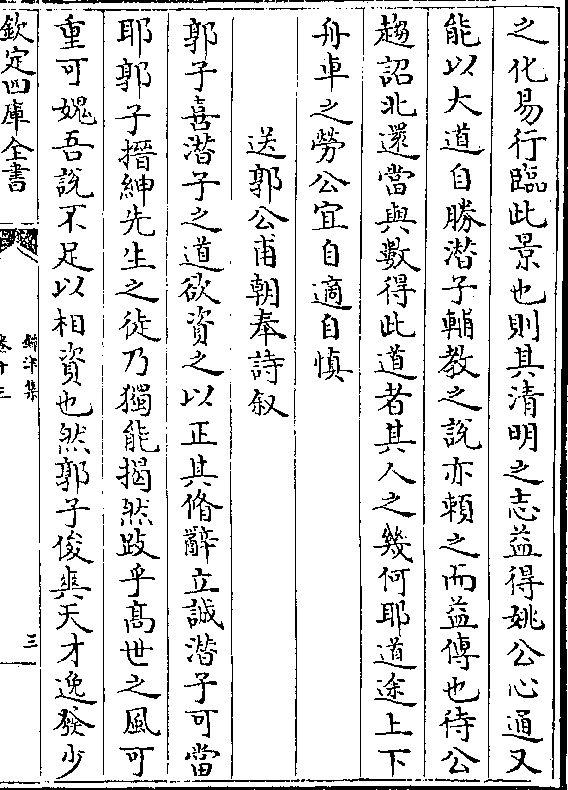 之化易行臨此景也則其清明之志益得姚公心通又
能以大道自勝潜子輔教之説亦頼之而益傳也待公
趨詔北還當與數得此道者其人之幾何耶道途上下
舟車之勞公宜自適自慎
送郭公甫朝奉詩叙
郭子喜潜子之道欲資之以正其脩辭立誠潜子可當
耶郭子搢紳先生之徒乃獨能揭然跂乎髙世之風可
重可媿吾説不足以相資也然郭子俊爽天才逸發少
欽定四庫全書
鐔津集
卷十三
三